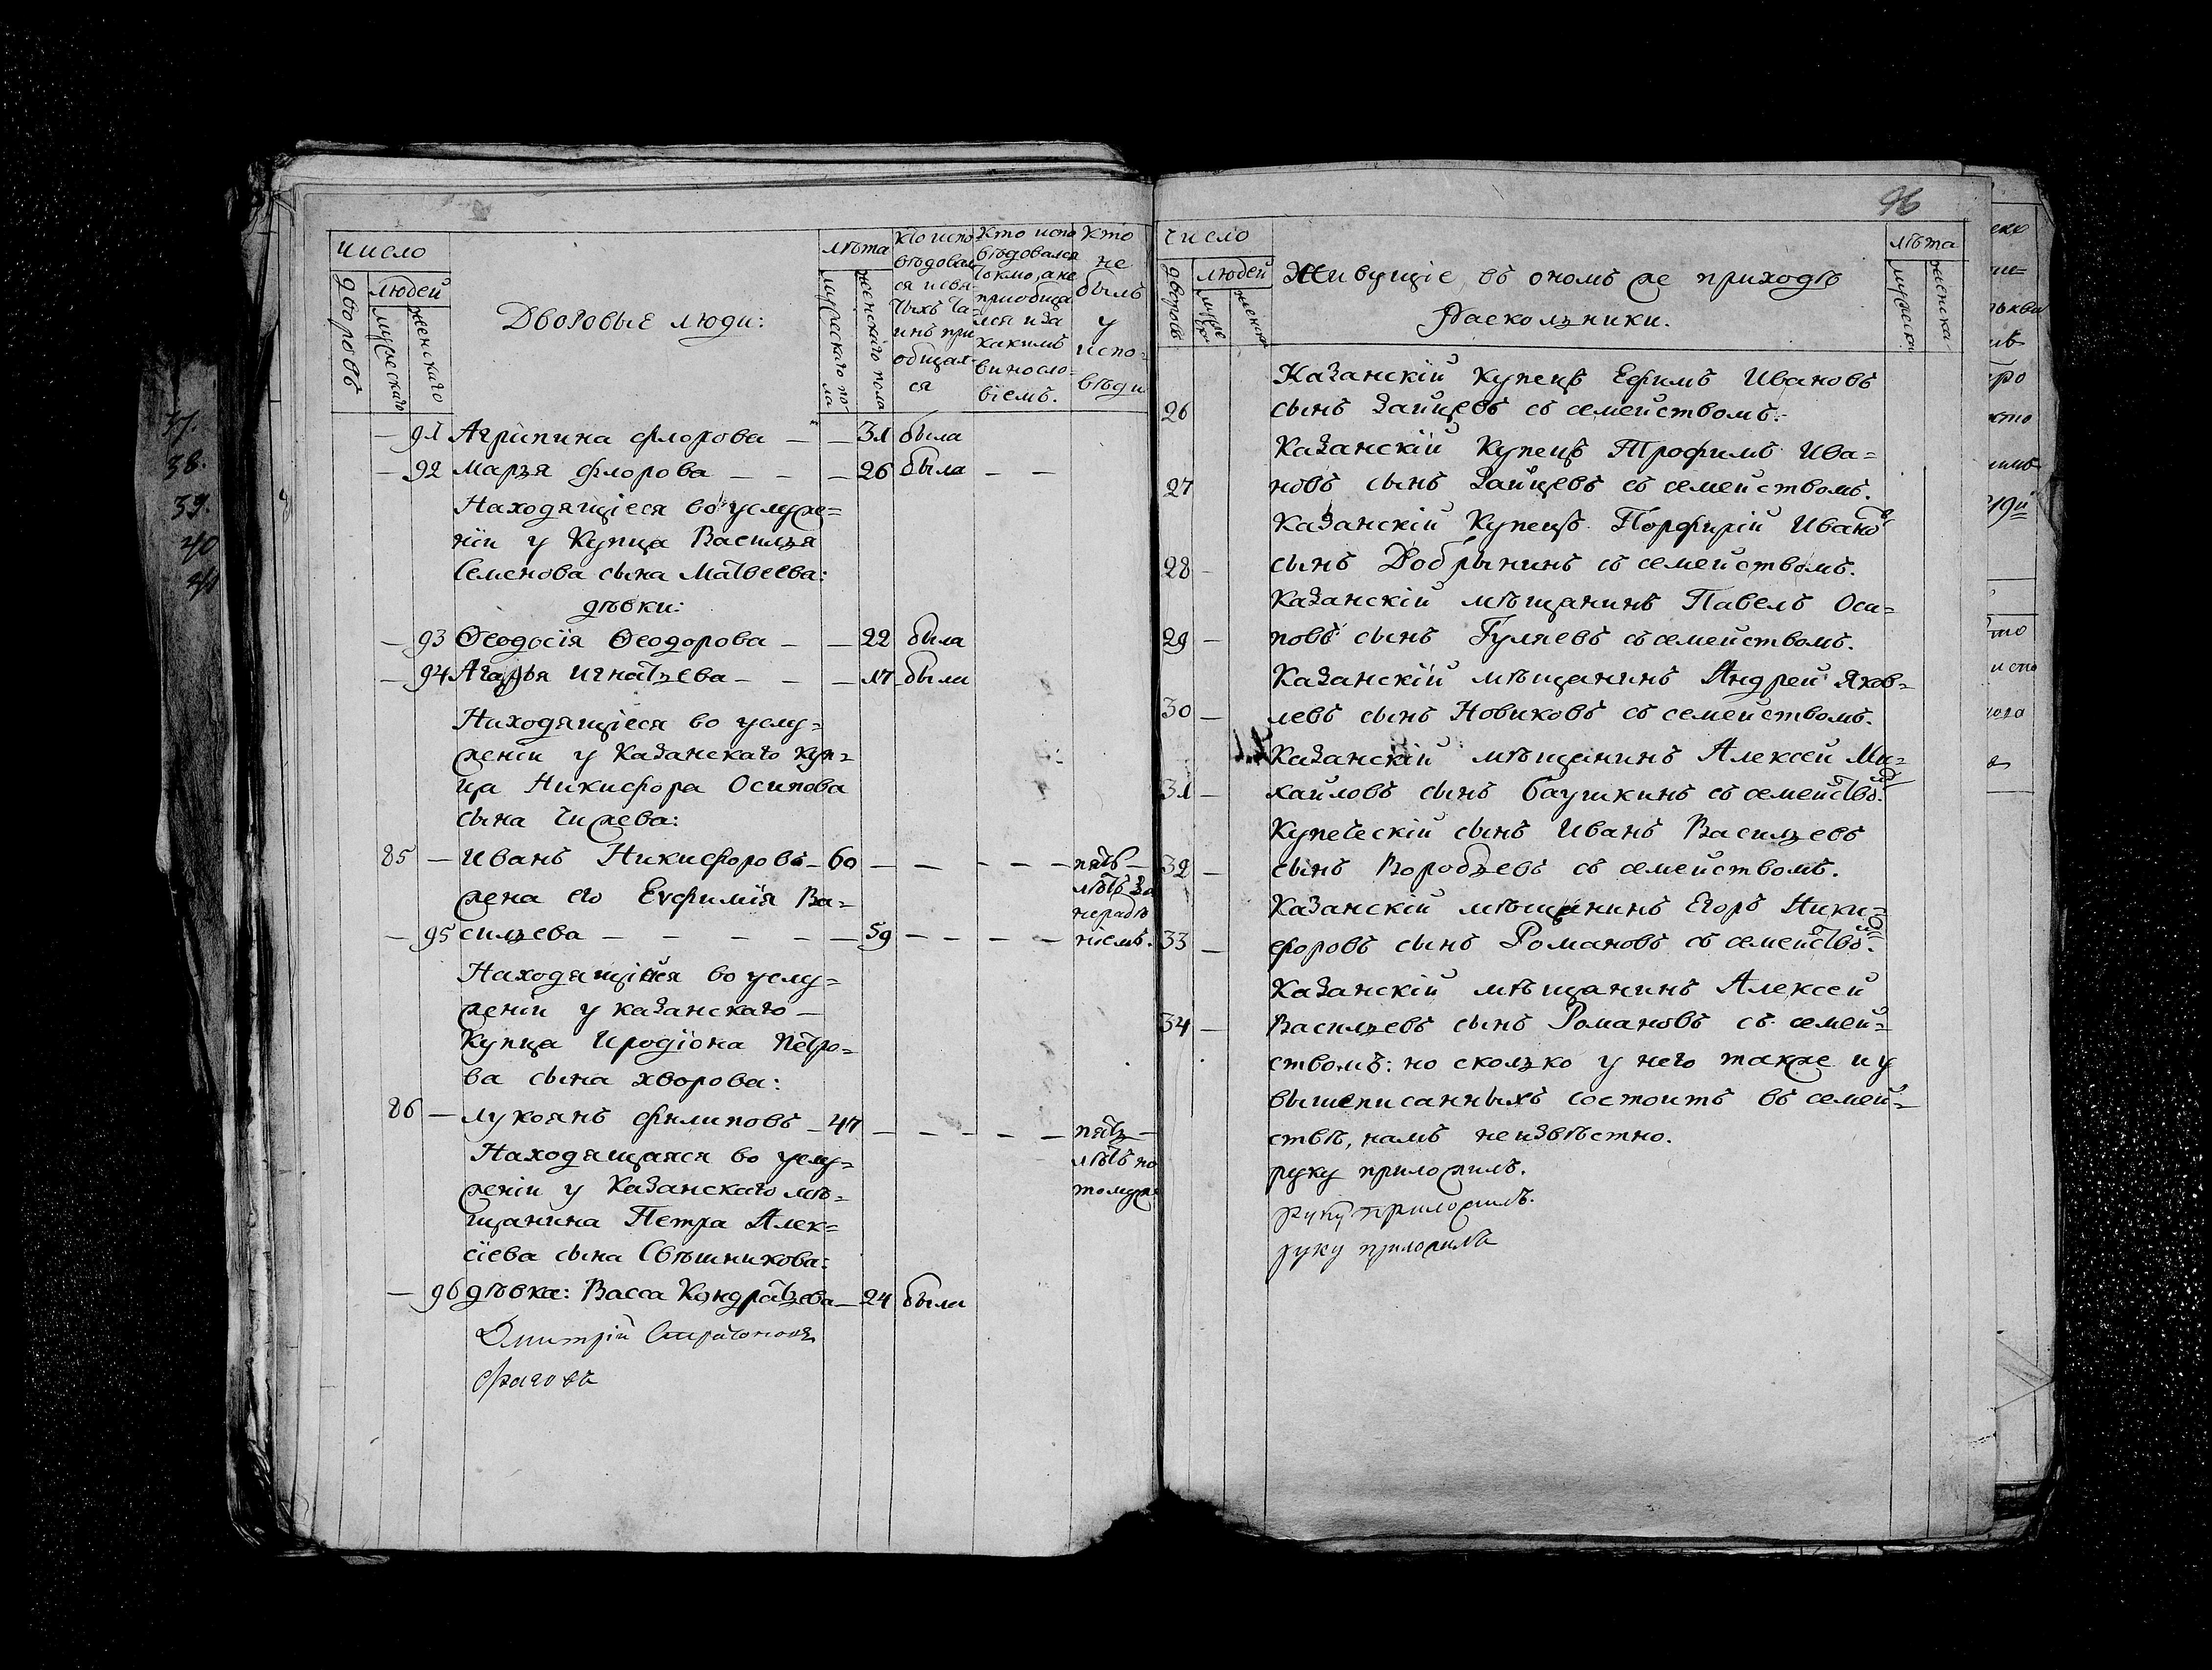 число
дворовъ
людей
мужескаго
женскаго
Дворовые люди:
лѣта
мужескаго пола
женскаго пола
Кто испо
вѣдовал
ся и свя
тыхъ та
инъ при
общал
ся
Кто испо
вѣдовался
токмо, а не
приобща
лся и за
какимъ
винословіемъ.
Кто
не
былъ
у
испо-
вѣди
— 91 Агрипина Флорова — — 31 была
— 92 Марья Флорова — — — 26 была — —
Находящіеся во услуже=
ніи у Купца Василья
Семенова сына Матвеева:
дѣвки:
— 93 Ѳеодосія Ѳеодорова — — 22 была
— 94 Агафья Игнатьева — — — 17 была
Находящіеся во услу=
женіи у Казанскаго Куп=
ца Никифора Осипова
сына Чижева:
85 — Иванъ Никифоровъ — 60 — — — — — пять —
лѣтъ за
нерадѣ
ніемъ.
жена его Еѵфимія Ва=
— 95 сильева — — — — — — 59 — — — —
Находящійся во услу=
женіи у казанскаго —
Купца Иродіона Петро=
ва сына хворова:
86 — лукоянъ Филиповъ — 47 — — — — — пять —
лѣтъ по
томуже
Находящаяся во услу=
женіи у Казанскаго мѣ=
щанина Петра Алек=
сіева сына Свѣшникова:
— 96 дѣвка: Васса Кондратьева — 24 была
Дмитрій
96
число
дворовъ
людей
мужеска
женска
Живущіе въ ономъ же приходѣ
Раскольники.
лѣта
мужеска
женска
Казанскій Купецъ Ефимъ Ивановъ
26 сынъ Зайцевъ съ семействомъ.
Казанскій Купецъ Трофимъ Ива=
27 новъ сынъ Зайцевъ съ семействомъ.
Казанскій Купецъ Порфирій Ивановъ
28 — сынъ Добрынинъ съ семействомъ.
Казанскій мѣщанинъ Павелъ Оси=
29 — повъ сынъ Гуляевъ съ семействомъ.
Казанскій мѣщанинъ Андрей Яков=
30 — левъ сынъ Новиковъ съ семействомъ.
Казанскій мѣщанинъ Алексей Ми=
31 — хайловъ сынъ баушкинъ съ семействомъ.
Купеческій сынъ Иванъ Васильевъ
32 — сынъ Воробьевъ съ семействомъ.
Казанскій мѣщанинъ Егоръ Ники=
33 — форовъ сынъ Романовъ съ семействомъ.
Казанскій мѣщанинъ Алексей
34 — Васильевъ сынъ Романовъ съ семей=
ствомъ: но сколько у него также и у
вышеписанныхъ состоитъ въ семей=
ствѣ, намъ неизвѣстно.
руку приложилъ.
руку приложилъ.
руку приложилъ
37.
38.
39.
40